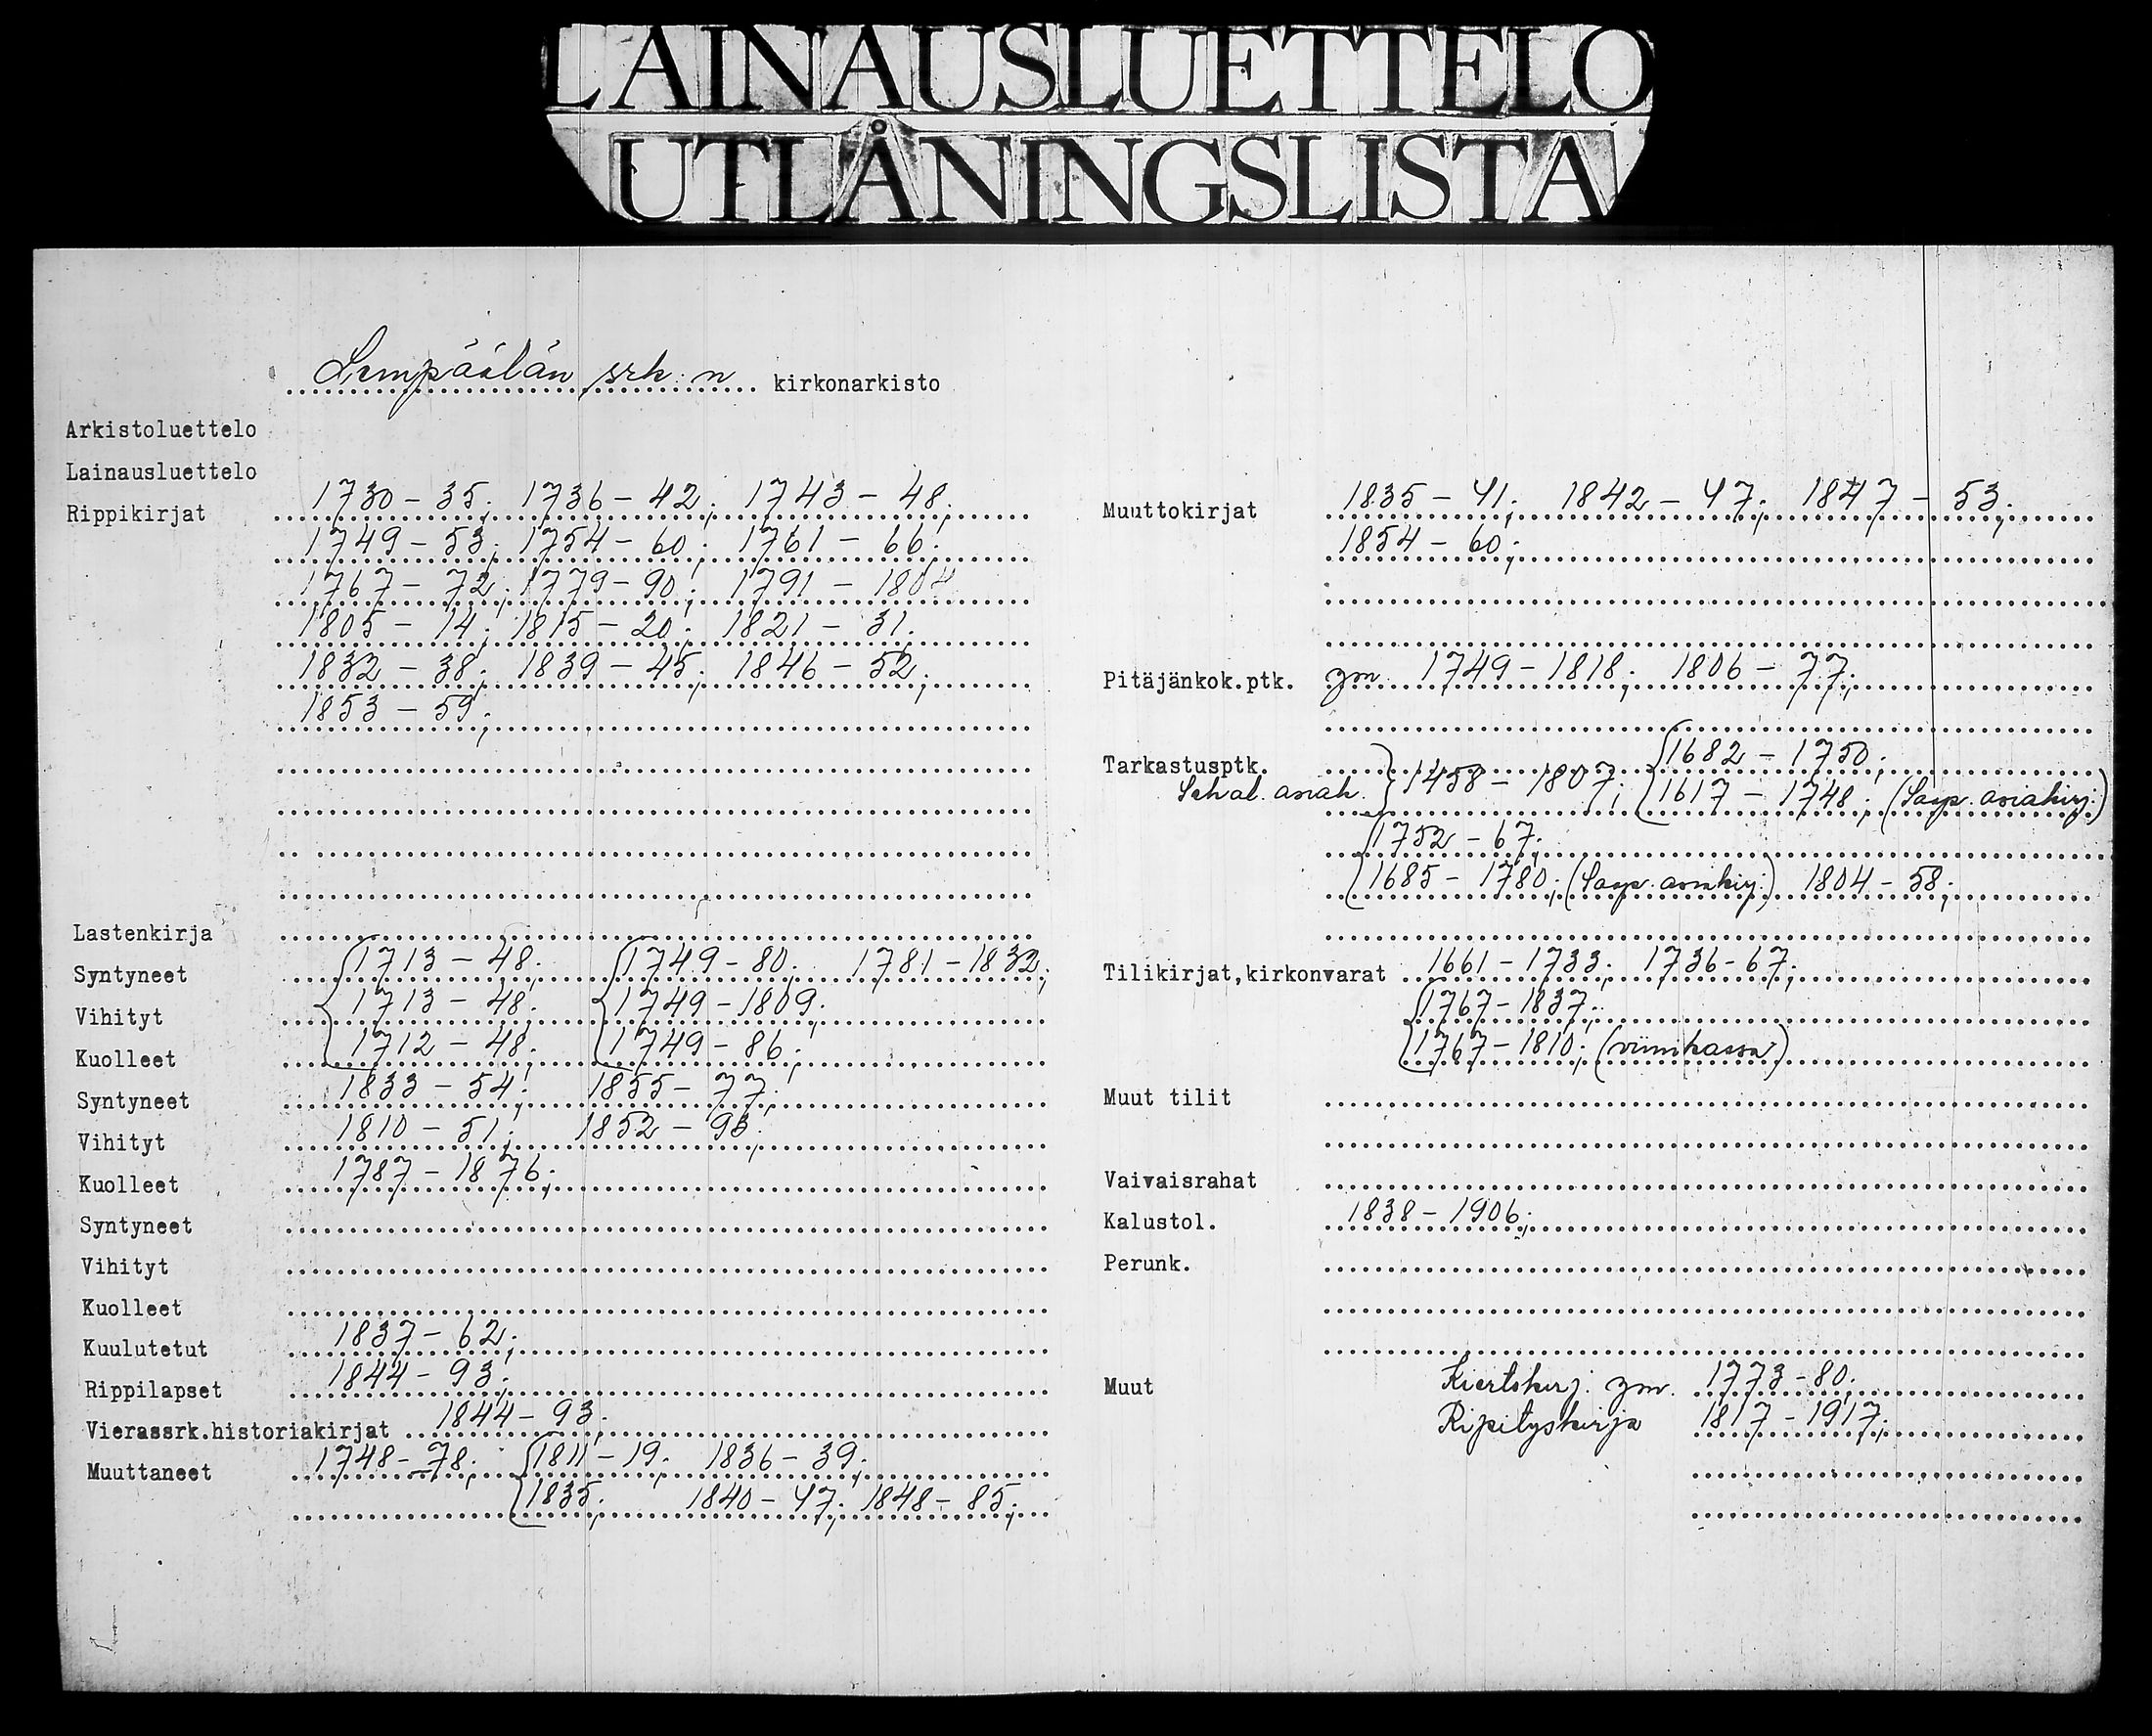 LAINAUSLUETTELO
UTLÅNINGSLISTA
Lempäälän srk:n kirkonarkisto
Arkistoluettelo
Lainausluettelo
Rippikirjat 1730-35; 1736-42; 1743-48;
1749-53; 1754-60; 1761-66;
1767-72; 1779-90; 1791-1804
1805-14; 1815-20; 1821-31;
1832-38; 1839-45; 1846-52;
1853-59;
Lastenkirja
Syntyneet 1713-48; 1749-80; 1781-1832;
Vihityt 1713-48; 1749-1809;
Kuolleet 1712-48; 1749-86;
Syntyneet 1833-54; 1855-77;
Vihityt 1810-51; 1852-93;
Kuolleet 1787-1876;
Syntyneet
Vihityt
Kuolleet
Kuulutetut 1837-62;
Rippilapset 1844-93;
Vierassrk.historiakirjat 1844-93;
Muuttaneet 1748-78; 1811-19; 1836-39;
1835; 1840-47; 1848-85;
Muuttokirjat 1835-41; 1842-47; 1847-53;
1854-60;
Pitäjänkok.ptk. ym 1749-1818; 1806-77;
Tarkastusptk. 1682-1750;
1458-1807; 1617-1748; (Saap. asiakirj.)
1752-67;
1685-1780; (Saap. asiakirj.) 1804-58;
Tilikirjat,kirkonvarat 1661-1733; 1736-67;
1767-1837;
1767-1810; (viinikassa)
Muut tilit
Vaivaisrahat
Kalustol. 1838-1906;
Perunk.
Muut Kiertokirj. ym. 1773-80;
Ripityskirja 1817-1917;